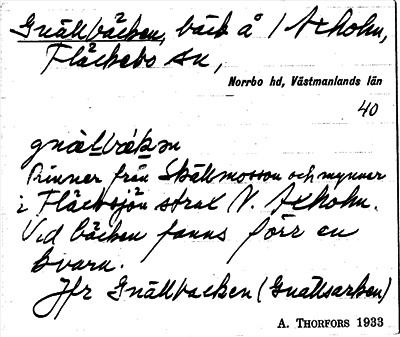 Gnällbäcken, bäck å / Axholm,
Fläckebo sn,
Norrbo hd, Västmanlands län
40
gnälbäkən
Rinner från Skällmosson och mynnar
i Fläcksjön strax V. Axholm.
Vid bäcken fanns förr en
kvarn.
Jfr Gnällbacken (Gnällsarken)
A. THORFORS 1933